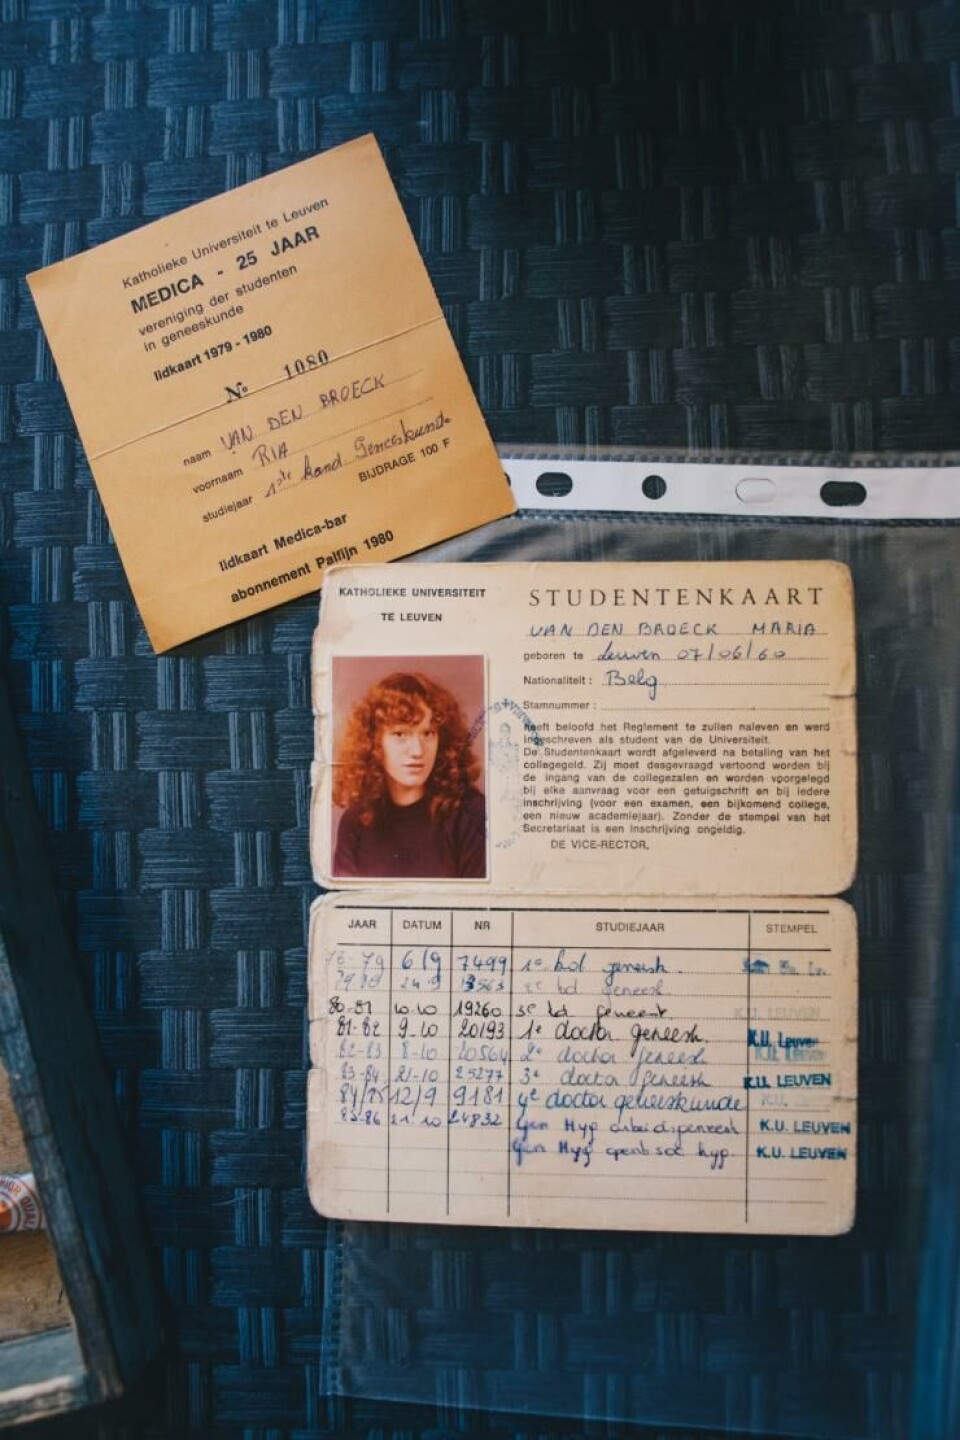 Katholieke Universiteit te Leuven
MEDICA - 25 JAAR
vereniging der studenten
in geneeskunde
lidkaart 1979 - 1980
No 1080
naam VAN DEN BROECK
voornaam RIA
studiejaar 1ste kand Geneeskunde
BIJDRAGE 100 F
lidkaart Medica-bar
abonnement Palfijn 1980
KATHOLIEKE UNIVERSITEIT
TE LEUVEN
STUDENTENKAART
VAN DEN BROECK MARIA
geboren te Leuven 07/06/60
Nationaliteit : Belg
Stamnummer :
heeft beloofd het Reglement te zullen naleven en werd
ingeschreven als student van de Universiteit.
De Studentenkaart wordt afgeleverd na betaling van het
collegegeld. Zij moet desgevraagd vertoond worden bij
de ingang van de collegezalen en worden voorgelegd
bij elke aanvraag voor een getuigschrift en bij iedere
inschrijving (voor een examen, een bijkomend college,
een nieuw academiejaar). Zonder de stempel van het
Secretariaat is een inschrijving ongeldig.
DE VICE-RECTOR,
JAAR DATUM NR STUDIEJAAR STEMPEL
78-79 6/9 7499 1e kd geneesk.
79-80 24-9 2e kd geneesk
80-81 10-10 19260 3e kd geneesk. K.U. LEUVEN
81-82 9-10 20193 1e doctor geneesk. K.U. Leuven
82-83 8-10 20564 2e doctor geneesk K.U. Leuven
83-84 21-10 25277 3e doctor geneesk K.U. LEUVEN
84/85 12/9 9181 4e doctor geneeskunde
85-86 21-10 24832 Gen Hyg arbeidsgeneesk K.U. LEUVEN
Gen Hyg openb soc hyg. K.U. LEUVEN